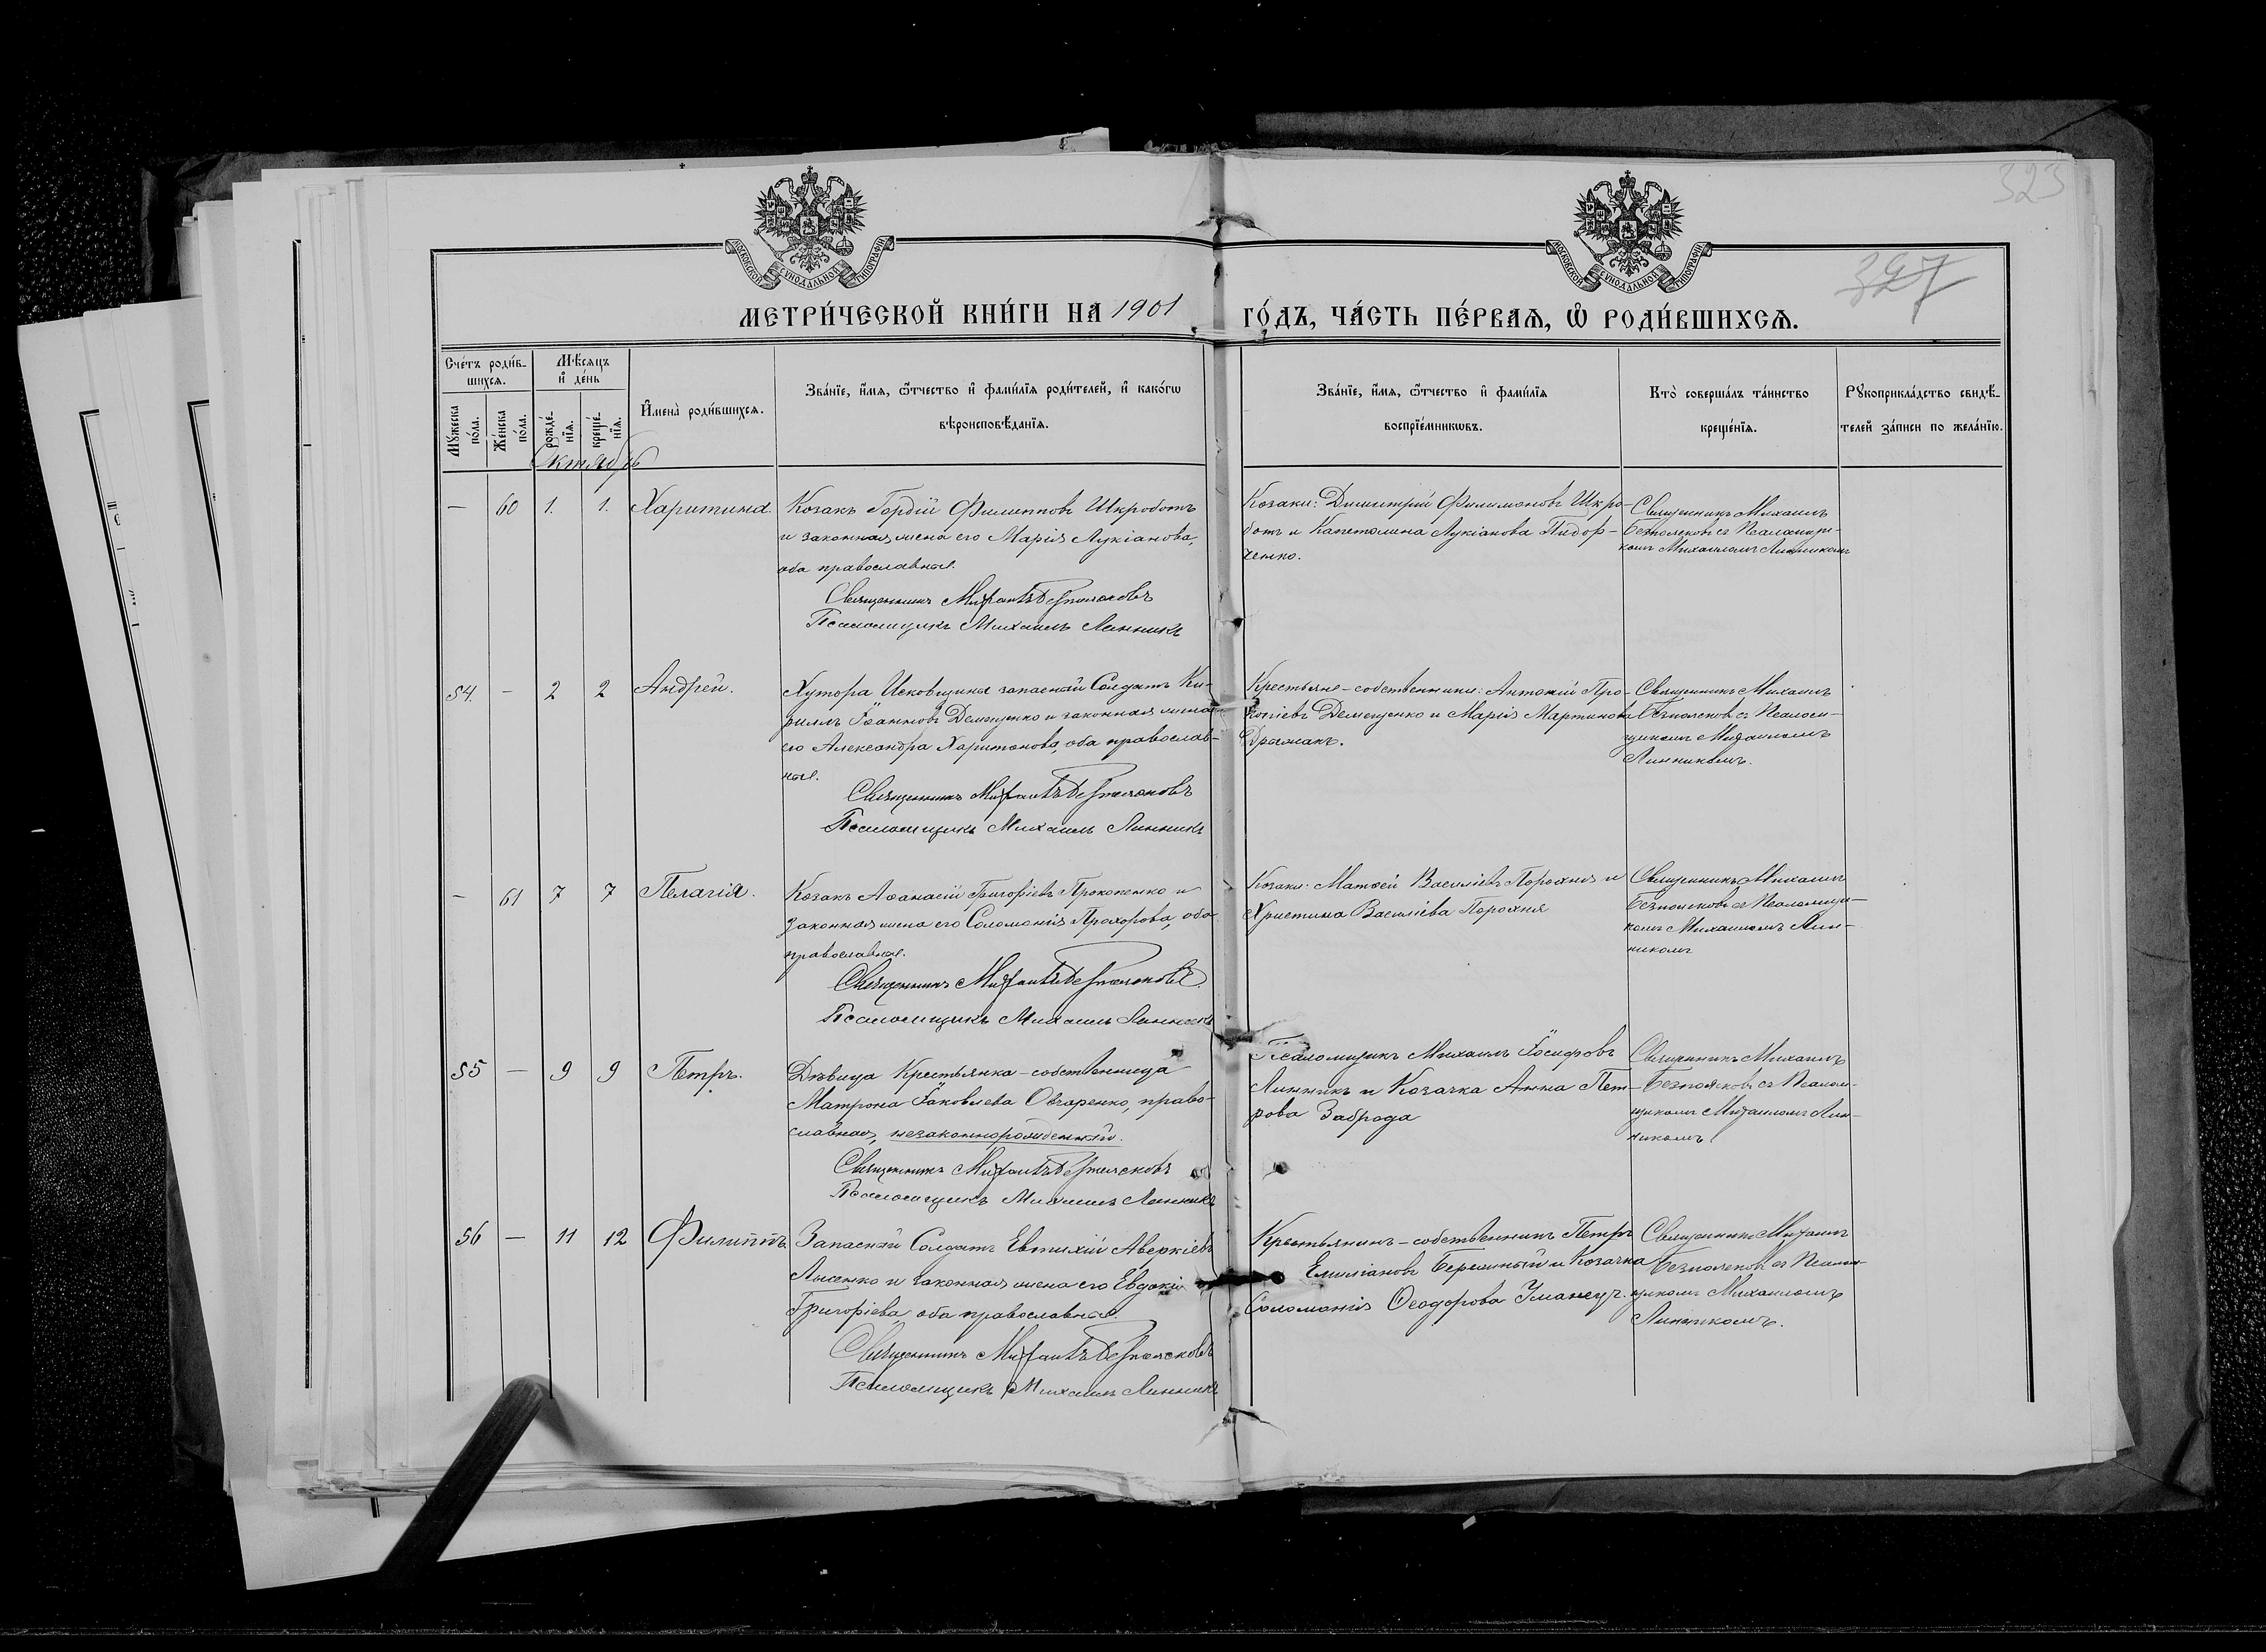 323
327
МОСКОВСКОЙ СѴНОДАЛЬНОЙ ТИПОГРАФІИ
МОСКОВСКОЙ СѴНОДАЛЬНОЙ ТИПОГРАФІИ
МЕТРИ́ЧЕСКОЙ КНИ́ГИ НА 1901 ГО́ДЪ, ЧА́СТЬ ПЕ́РВАѦ, Ѽ РОДИ́ВШИХСѦ.
Сче́тъ роди́в-
шихсѧ.
Мѣ́сѧцъ
и҆ де́нь
Мꙋ́жеска по́ла.
Же́нска по́ла.
рожде́-
нїѧ.
креще́-
нїѧ.
И҆мена̀ роди́вшихсѧ.
Зва́нїе, и҆́мѧ, ѻ҆́тчество и҆ фами́лїѧ роди́телей, и҆ како́гѡ
вѣроисповѣ́данїѧ.
Зва́нїе, и҆́мѧ, ѻ҆́тчество и҆ фами́лїѧ
воспрїе́мникѡвъ.
Кто̀ соверша́лъ та́инство
креще́нїѧ.
Рꙋкоприкла́дство свидѣ́-
телей за́писи по жела́нїю.
Октябрь
— 60 1. 1. Харитина.
Козакъ Гордій Филипповъ Шкроботъ
и законная жена его Марія Лукіанова,
оба православные.
Священникъ Михаилъ Безпояковъ
Псаломщикъ Михаилъ Линникъ
Козаки: Димитрій Филимоновъ Шкро-
ботъ и Капетолина Лукіанова Пидор-
ченко.
Священникъ Михаилъ
Безпояковъ съ Псаломщи-
комъ Михаиломъ Линникомъ
54. — 2 2 Андрей.
Хутора Исковщины запасный Солдатъ Ки-
риллъ Іоанновъ Демещенко и законная жена
его Александра Харитонова, оба православ-
ные.
Священникъ Михаилъ Безпояковъ
Псаломщикъ Михаилъ Линникъ
Крестьяне-собственники: Антоній Про-
копіевъ Демещенко и Марія Мартинова
Священникъ Михаилъ
Безпояковъ съ Псалом-
щикомъ Михаиломъ
Линникомъ.
— 61 7 7 Пелагія.
Козакъ Аѳанасій Григоріевъ Прокопенко и
законная жена его Соломонія Прохорова, оба
православные.
Священникъ Михаилъ Безпояковъ
Псаломщикъ Михаилъ Линникъ
Козаки: Матѳей Василіевъ Порохня и
Христина Василіева Порохня
Священникъ Михаилъ
Безпояковъ съ Псаломщи-
комъ Михаиломъ Лин-
никомъ
55 — 9 9 Петръ.
Дѣвица Крестьянка-собственница
Матрона Іаковлева Овчаренко, право-
славная, незаконнорожденный.
Священникъ Михаилъ Безпояковъ
Псаломщикъ Михаилъ Линникъ
Псаломщикъ Михаилъ Іосифовъ
Линникъ и Козачка Анна Пет-
рова Заброда
Священникъ Михаилъ
Безпояковъ съ Псалом-
щикомъ Михаиломъ Лин-
никомъ.
56 — 11 12 Филиппъ.
Запасный Солдатъ Евтихій Аверкіевъ
Лысенко и законная жена его Евдокія
Григоріева, оба православные.
Священникъ Михаилъ Безпояковъ
Псаломщикъ Михаилъ Линникъ
Крестьянинъ-собственникъ Петръ
Емиліановъ Бережный и Козачка
Соломонія Ѳеодорова Уманецъ.
Священникъ Михаилъ
Безпояковъ съ Псалом-
щикомъ Михаиломъ
Линникомъ.